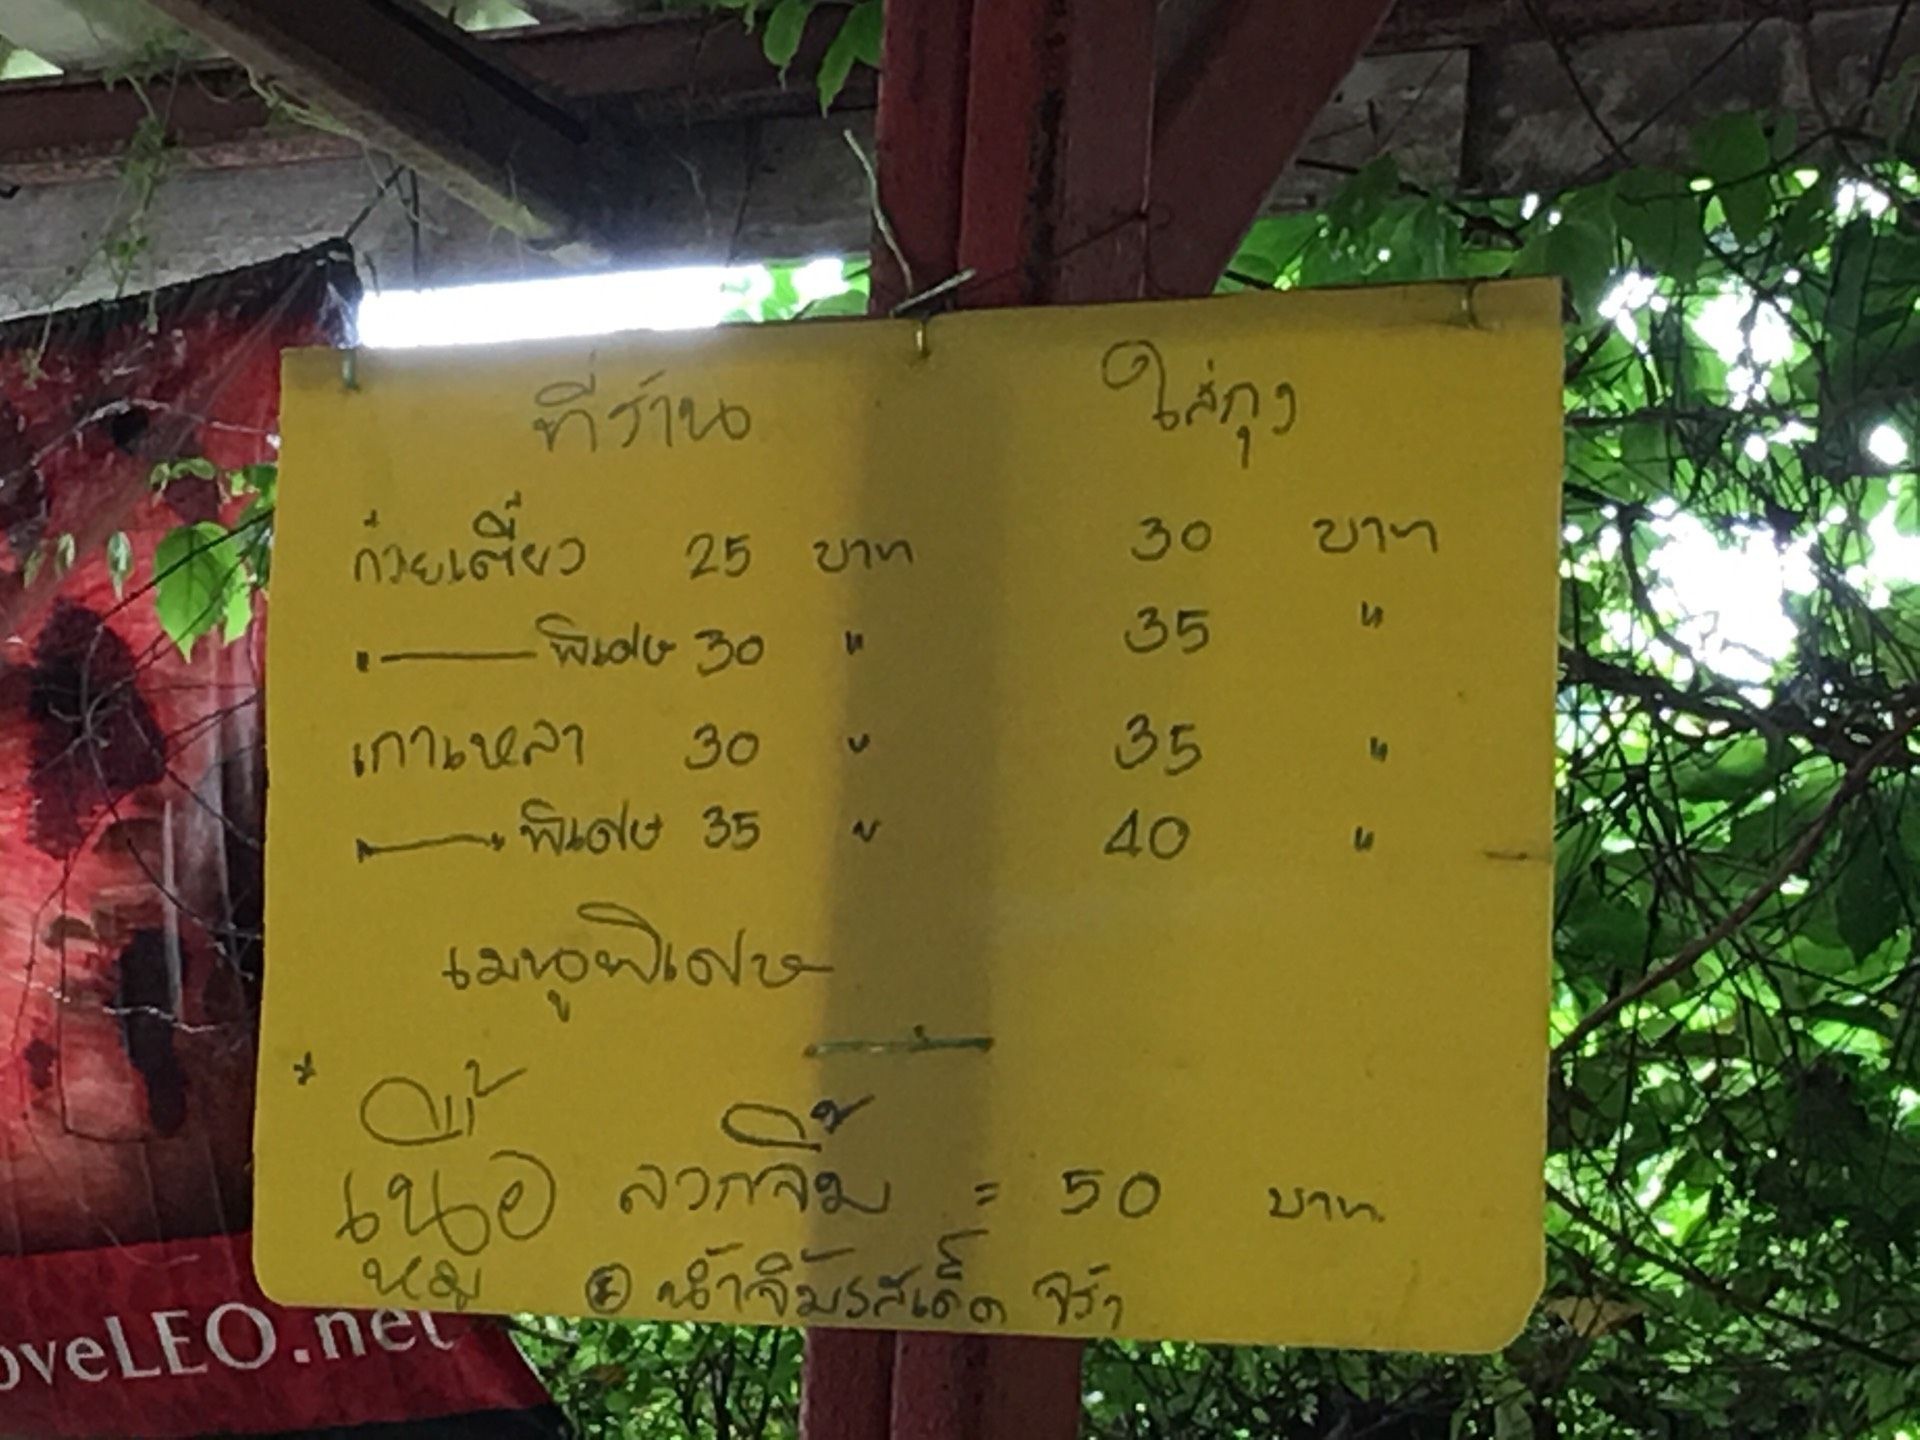 ที่ร้าน ใส่ถุง
ก๋วยเตี๋ยว 25 บาท 30 บาท
"———พิเศษ 30 " 35 "
เกาเหลา 30 " 35 "
"———"พิเศษ 35 " 40 "
เมนูพิเศษ
* เนื้อ ลวกจิ้ม = 50 บาท
หมู น้ำจิ้มรสเด็ด จร้า
oveLEO.net